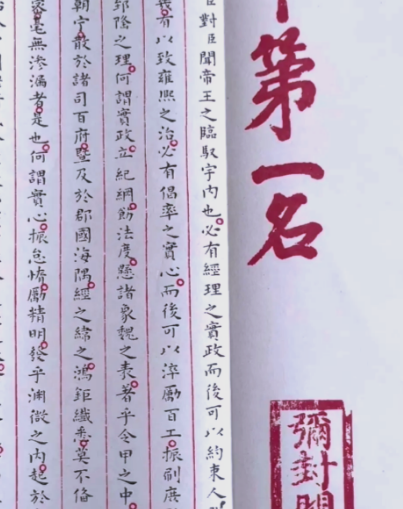 第一名
彌封
對臣聞帝王之臨馭宇內也必有經理之實政而後可以約束人
有以致雍熙之治必有倡率之實心而後可以淬勵百工振刷庶
郅隆之理何謂實政立紀綱飭法度懸諸象魏之表著乎令甲之中
朝宁散於諸司百府暨及於郡國海隅經之緯之鴻鉅纖悉莫不俻
密毫無滲漏者是也何謂實心振怠惰勵精明發乎淵微之內起於